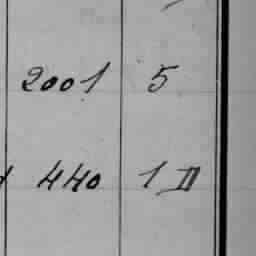 2001 5
440 1 II